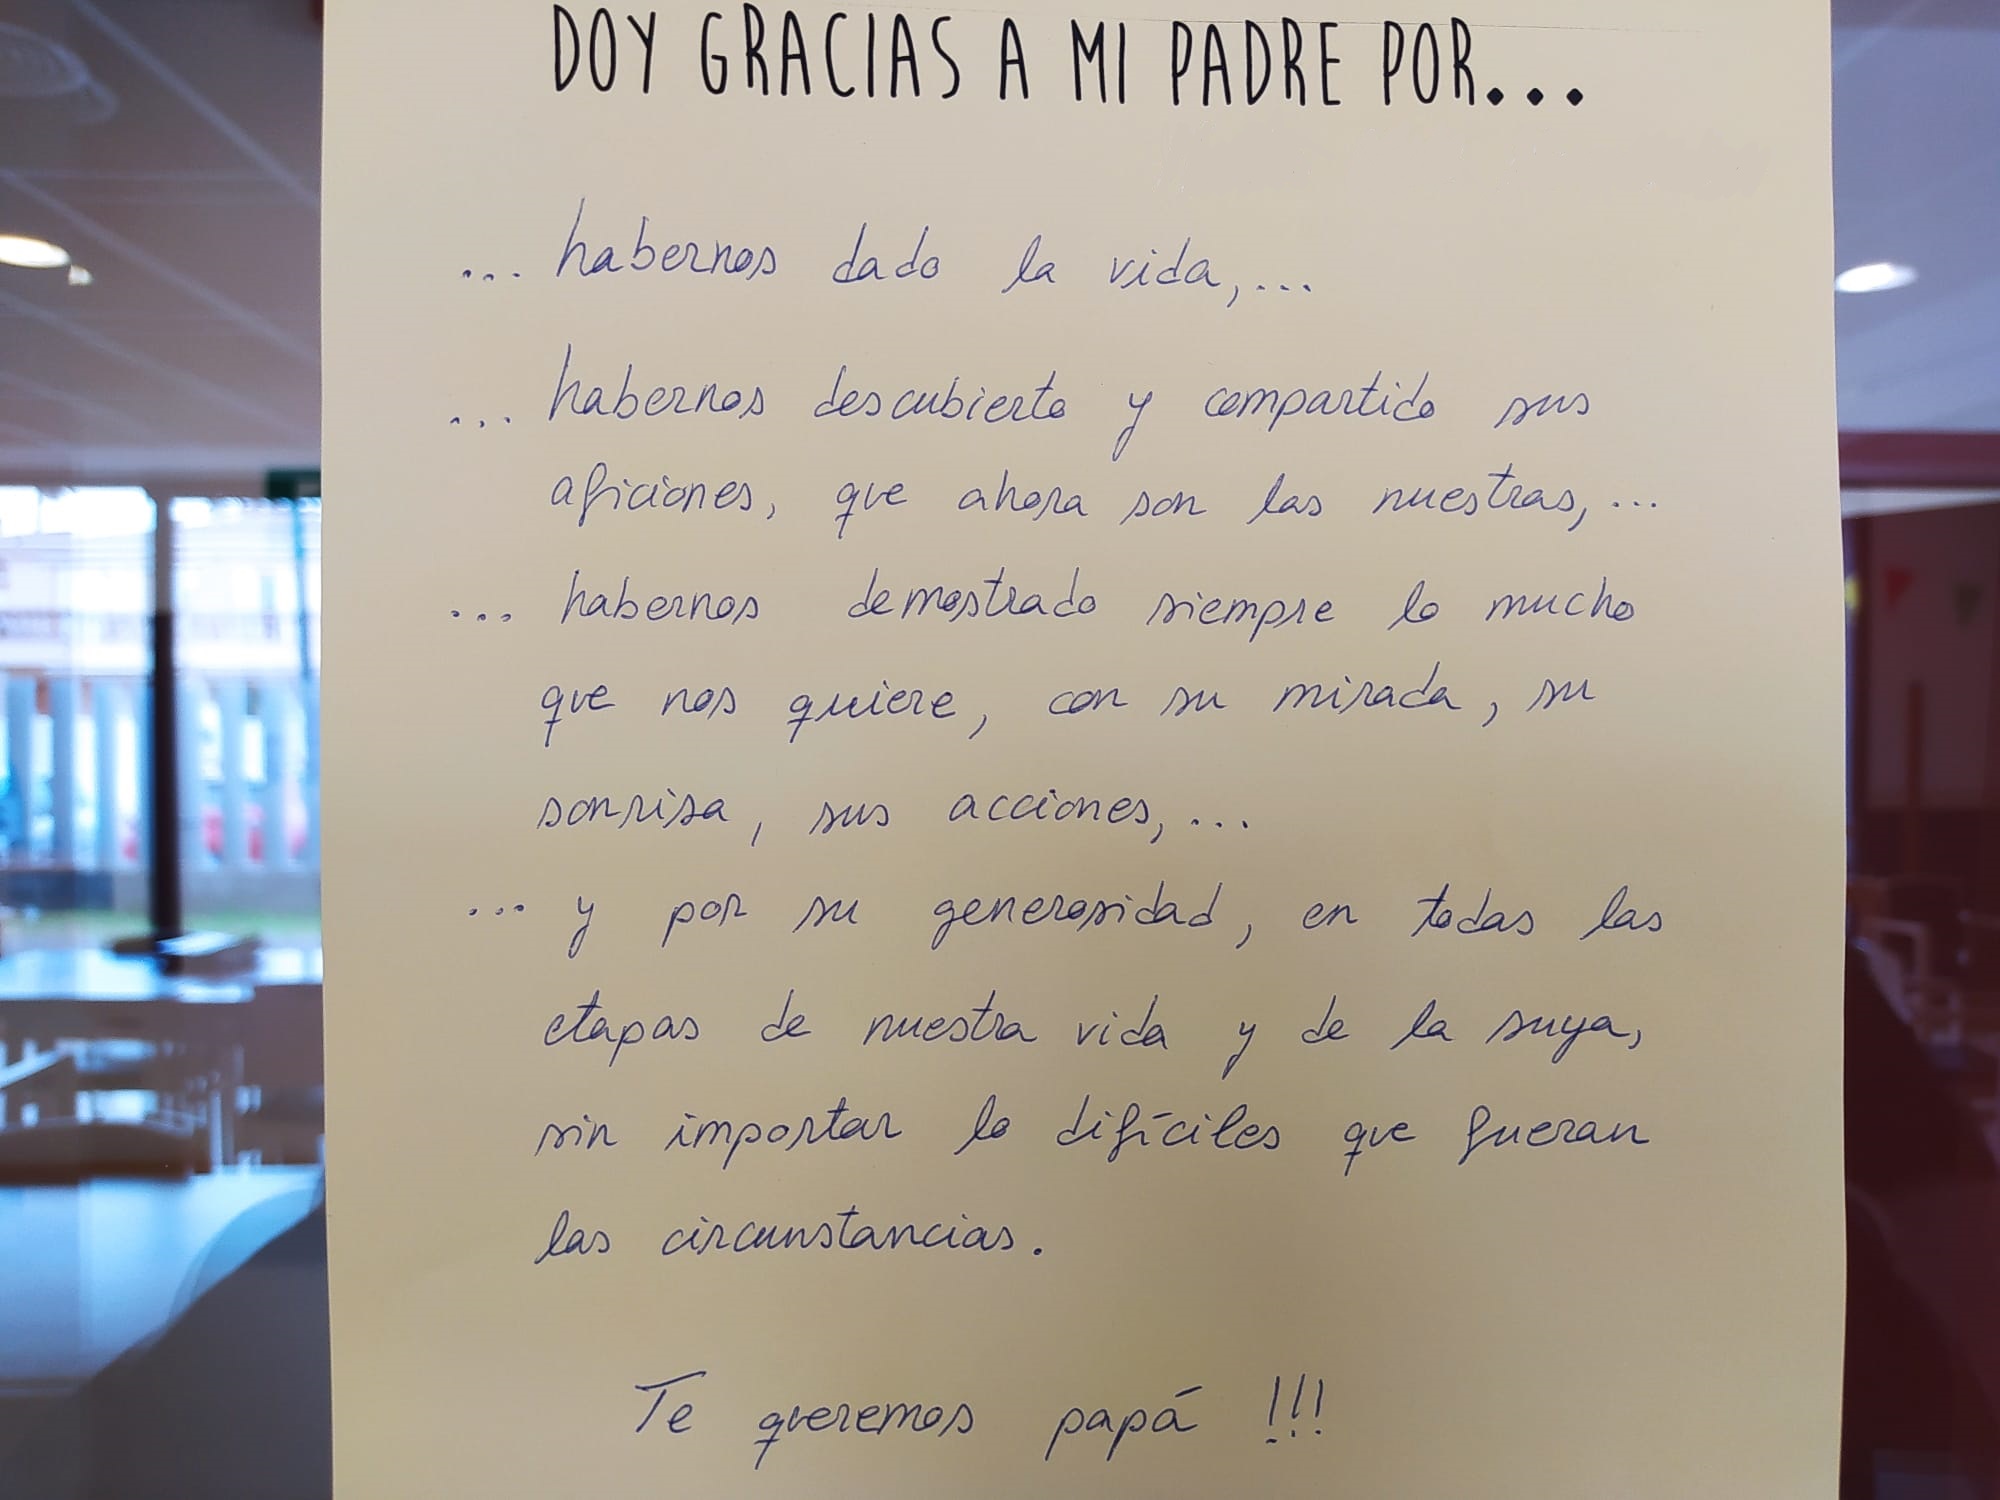 DOY GRACIAS A MI PADRE POR...
... habernos dado la vida,...
... habernos descubierto y compartido sus
aficiones, que ahora son las nuestras,...
... habernos demostrado siempre lo mucho
que nos quiere, con su mirada, su
sonrisa, sus acciones,...
... y por su generosidad, en todas las
etapas de nuestra vida y de la suya,
sin importar lo difíciles que fueran
las circunstancias.
Te queremos papá !!!